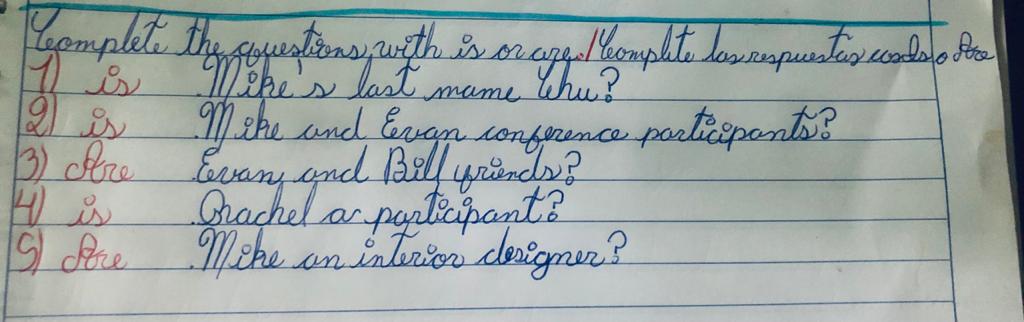 Complete the questions with is or are./Complete las respuestas con Is o Are
1) is Mike's last mame Chu?
2) is Mike and Evan conference participants?
3) Are Evan and Bill friends?
4) is Rachel a participant?
5) Are Mike an interior designer?